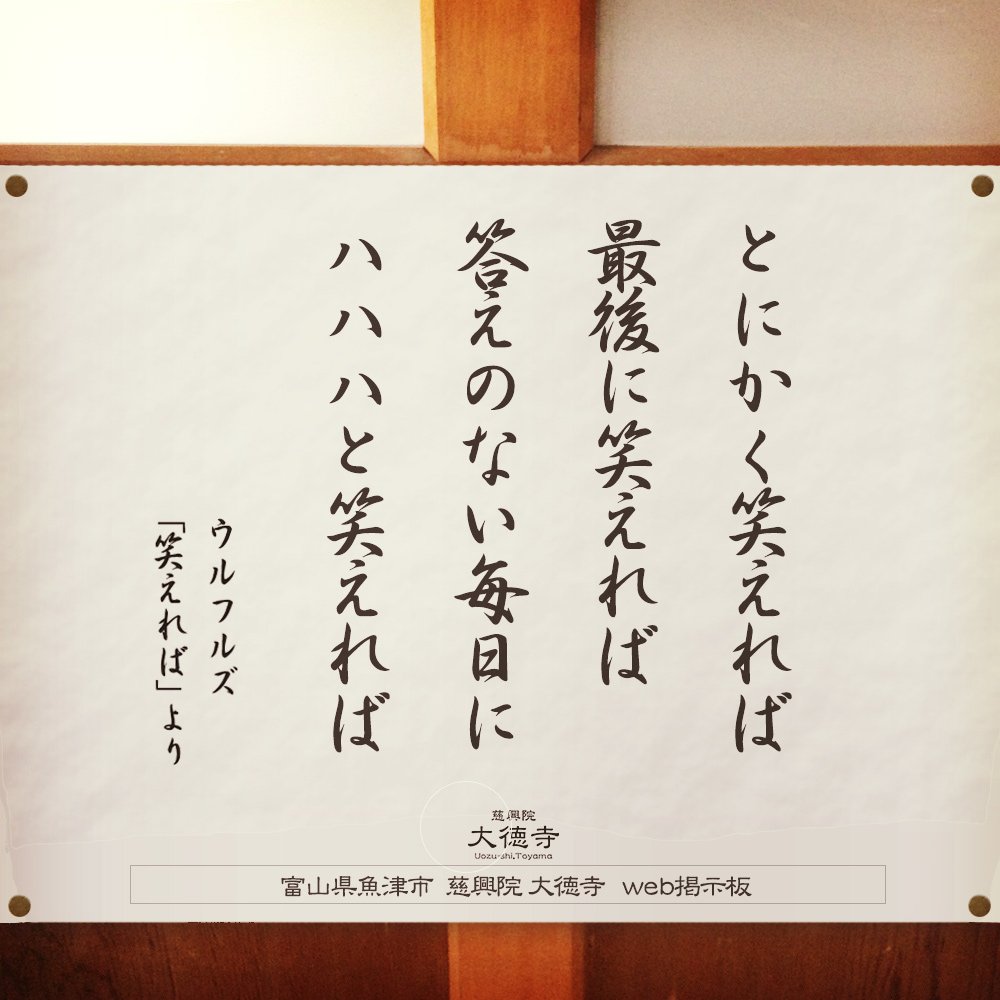 とにかく笑えれば
最後に笑えれば
答えのない毎日に
ハハハと笑えれば
ウルフルズ
「笑えれば」より
慈興院
大徳寺
Uozu-shi,Toyama
富山県魚津市 慈興院 大徳寺 web掲示板